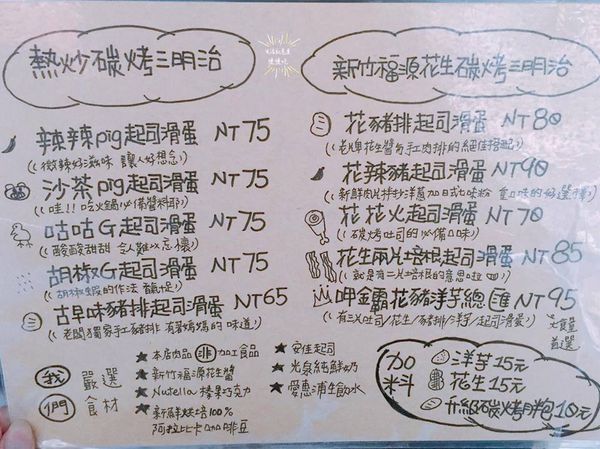 熱炒碳烤三明治
辣辣pig起司滑蛋 NT75
(微辣好滋味 讓人好想念)
沙茶pig起司滑蛋 NT75
(哇!! 吃火鍋必備醬料部)
咕咕G起司滑蛋 NT75
(酸酸甜甜 令人難以忘懷)
胡椒G起司滑蛋 NT75
(胡椒蝦的作法 雞捉)
古早味豬排起司滑蛋 NT65
(老闆獨家手工豬排 有著媽媽的味道)
新竹福源花生碳烤三明治
花豬排起司滑蛋 NT80
(老牌花生醬与手工肉排的絕佳搭配)
花辣豬起司滑蛋 NT90
(新鮮肉片拌炒洋蔥加日式七味粉 重口味的好選擇)
花花火起司滑蛋 NT70
(碳烤吐司的必備口味)
花生兩片培根起司滑蛋 NT85
(就是有二片培根的意思啦)
呷金霸花豬洋芋總匯 NT95
(有三片吐司/花生/豬排/洋芋/起司滑蛋)
大食量
首選
我們
嚴選
食材
★本店肉品非加工食品
★新竹福源花生醬
★Nutella 榛果巧克力
★新鮮烘培100%
阿拉比卡咖啡豆
★安佳起司
★光泉純鮮奶
★愛惠浦生飲水
加料
洋芋15元
花生15元
升級碳烤胖包10元